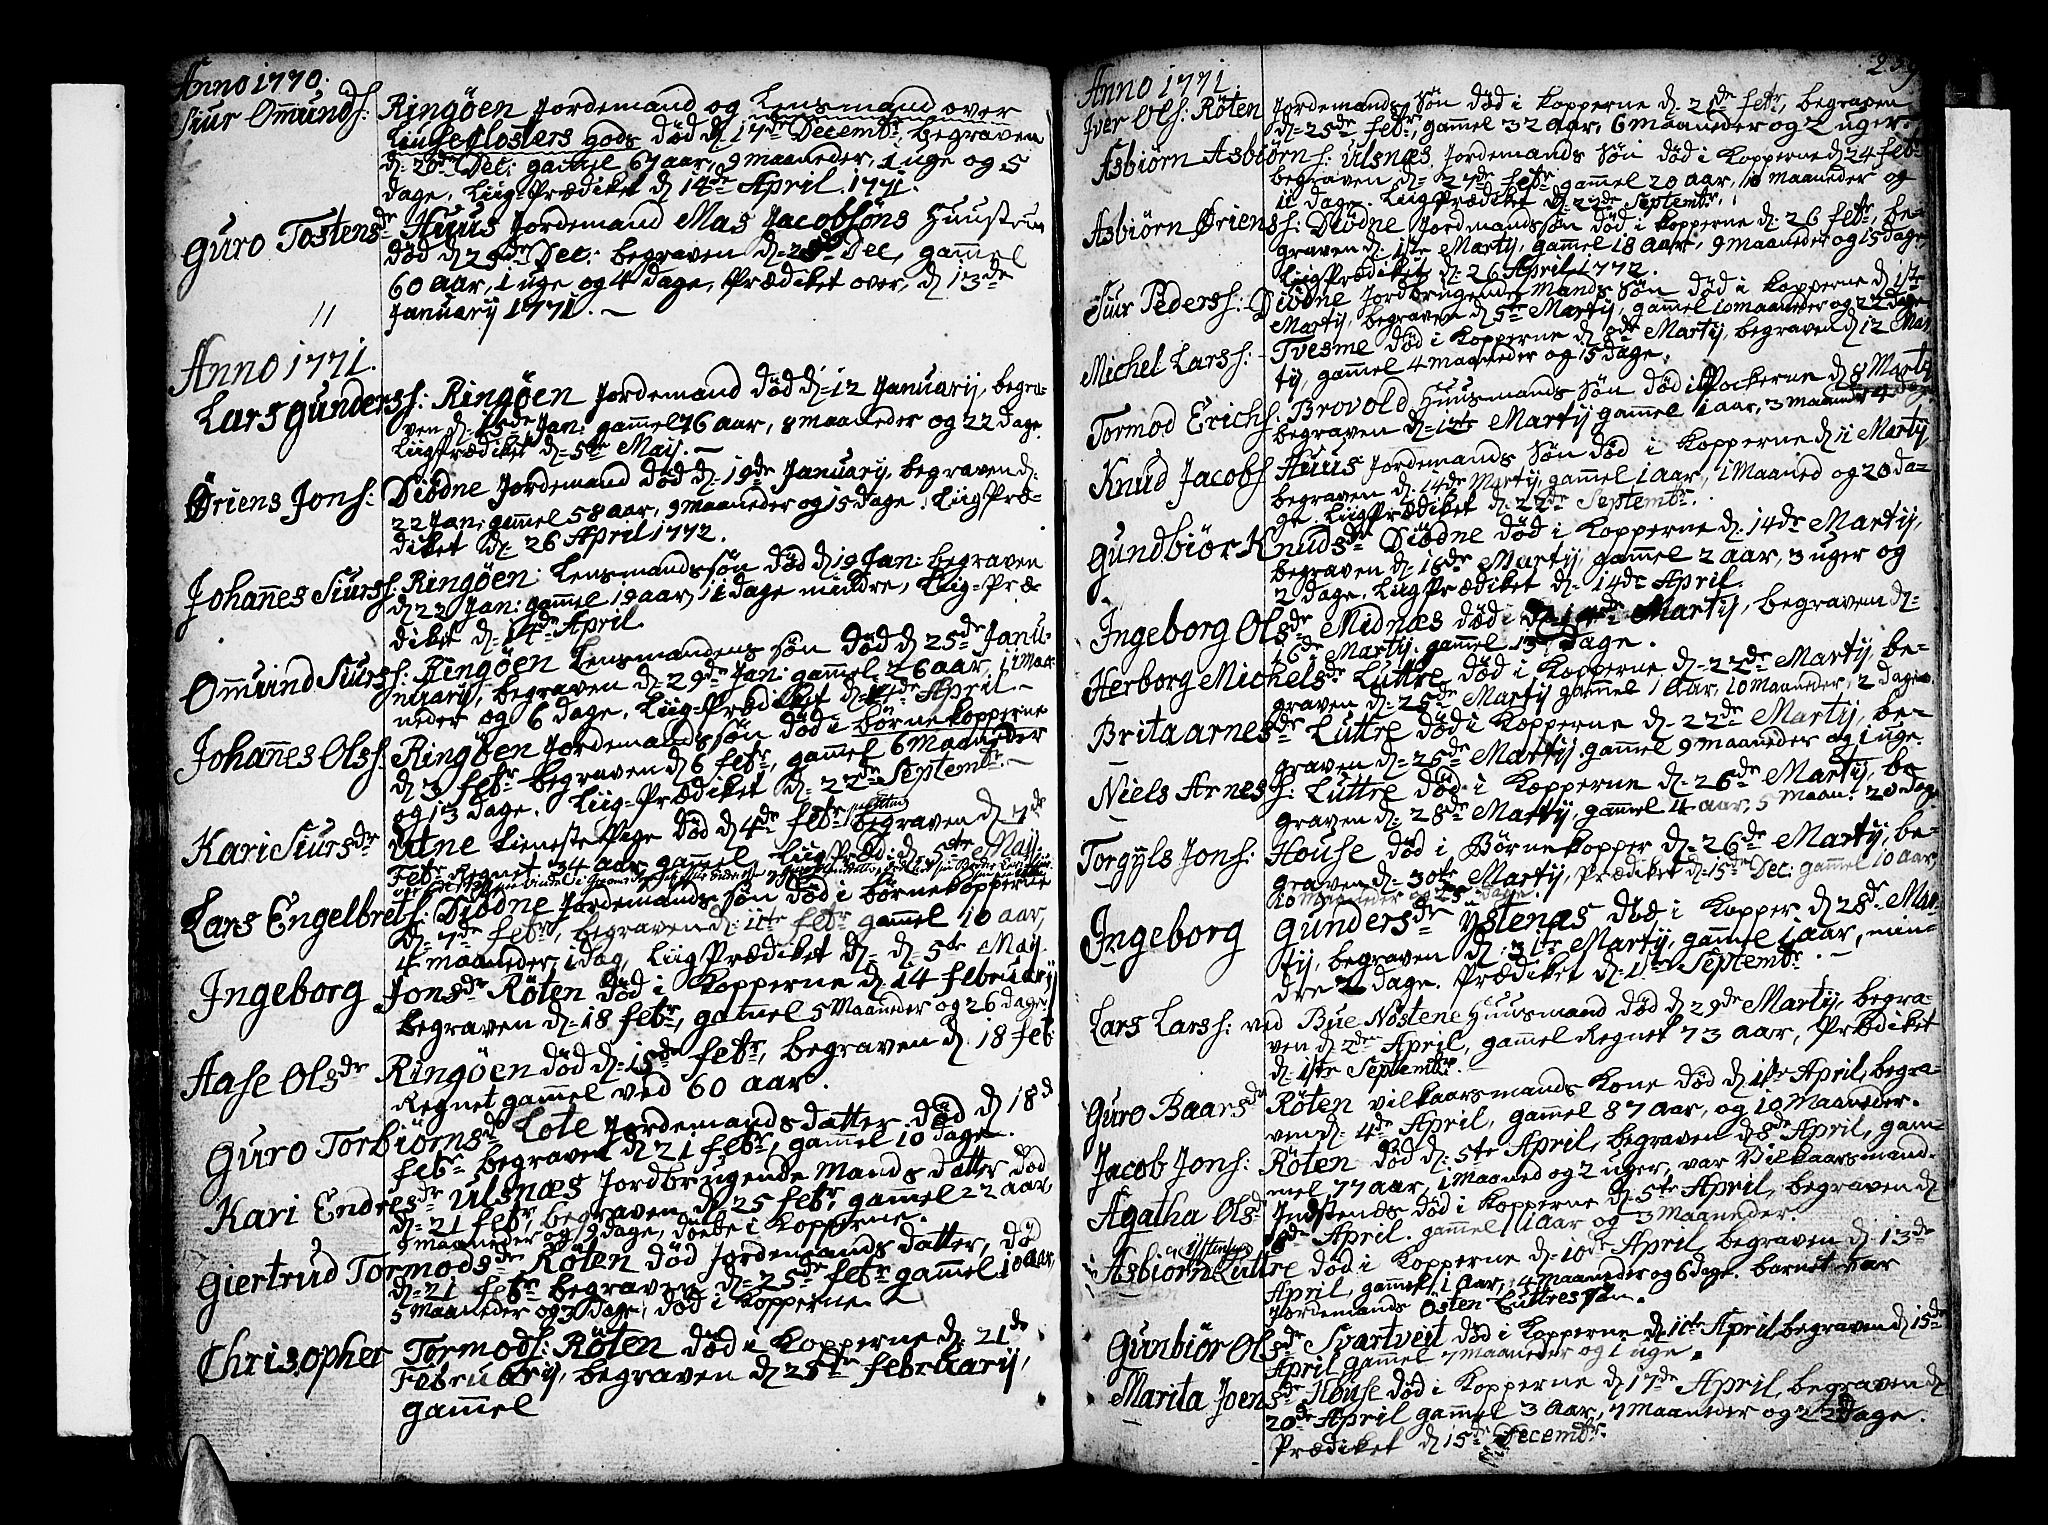 Anno 1770.
Siur Omunds: Ringöen Jordemand og Lensmand over
Liuseclosters gods död d. 17de Decembr, begraven
d. 26de Dec: gamel 67 aar, 9 maaneder, 1 uge og 5
dage, Liig-Prædiket d 14de April 1771.
Guro Tostensdr Huus Jordemand Mas Jacobsöns Huustru
död d 23de Dec: begraven d. 28de Dec, gamel
60 aar, 1 uge og 4 dage, Prædiket over, d 13de
Januarij 1771.
Anno 1771.
Lars Gunders: Ringöen Jordemand död d. 12 Januarij, begra-
ven d. 15de Jan: gamel 76 aar, 8 maaneder og 22 dage
LiigPrædiket d. 5te Maij.
Øriens Jons: Diödne Jordemand död d. 19de Januarij, begraven d.
22 Jan: gamel 58 aar, 9 maaneder og 15 dage. LiigPræ-
diket d. 26 April 1772.
Johannes Siurs: Ringöen Lensmandssön död d 19 Jan: begraven
d 23 Jan: gamel 19 aar, 11 dage mindre, Liig-Præ-
diket d. 14de April.
Omund Siurs: Ringöen Lensmandens sön död d 25de Janu-
uarij, begraven d. 29de Jan: gamel 26 aar, 11 maa-
neder og 6 dage, Liig-Prædiket d. 14de April.
Johannes Ols: Ringöen Jordemandssön död i börnekopperne
d 3 febr begraven d 6 febr, gamel 6 maaneder
og 13 dage. Liig-Prædiket d. 22de Septembr.
Kari Siursdr Utne tieneste Pige död d 4de febr begraven d 7de
febr Regnet 34 aar gamel, LiigPræd: d. 5te Maij.
Lars Engelbrets: Diödne Jordemandssön död i börnekopperne
d. 7de febr, begraven d. 11te febr gamel 10 aar,
4 maaneder, 1 dag, Liig Prædiket d. d. 5te Maij.
Ingeborg Jonsdr Röten död i kopperne d 14 februarij
begraven d. 18 febr, gamel 5 Maaneder og 26 dage,
Aase Olsdr Ringöen död d. 15de febr, begraven d 18 feb
Regnet gamel ved 60 aar.
Guro Torbiörnsd Lote Jordemands datter död d 18d
febr begraven d 21 febr, gamel 10 dage.
Kari Endresdr Ulsnæs Jordbrugende Mands datter död
d. 21 febr, begraven d 25 febr, gamel 22 aar,
9 maaneder og 19 dage, döebe i kopperne.
Giertrud Tormodsdr Röten död Jordemands datter, död
d. 21 febr begraven d. 25de febr gamel 10 aar,
5 Maaneder og 3 dage, död i kopperne.
Chrisopher Tormods: Röten död i kopperne d. 21de
Februarij, begraven d 25te februarij,
gamel
Anno 1771
Iver Ols: Röten Jordemands sön död i kopperne d. 21de febr, begraven
d. 25de febr, gamel 32 aar, 6 maaneder og 2 uger.
Asbiörn Asbiörns: Ulsnæs Jordemands sön död i kopperne d 24 feb
begraven d. 27de febr gamel 20 aar, 10 maaneder og
11 dage. LiigPrædiket d. 22de Septembr.
Asbiörn Øriens: Diödne Jordmandssön död i kopperne d. 26 febr, be-
graven d. 1ste Martij, gamel 18 aar, 9 maaneder og 15 dage
LiigPrædiket d. 26 April 1772.
Siur Peders: Diödne Jordbrugende Mands sön död i kopperne d 1ste
Martij, begraven d 5te Martij, gamel 10 maaneder og 22 dage
Michel Lars: Tvesme död i kopperne d 8de Martij begraven d 12 Mar
tij, gamel 4 maaneder og 15 dage.
Tormod Erichs: Brovold Huusmands sön död i Pockerne d 8 Martij
begraven d. 12te Martij gamel 1 aar, 3 maaneder 4 dage
Knud Jacobs Huus Jordemands sön död i kopperne d 11 Martij
begraven d. 14de Martij, gamel 1 aar, 1 Maaned og 20 da-
ge. LiigPrædiket d. 22de Septembr.
Gundbiör Knudsdr Diödne död i kopperne d. 14de Martij,
begraven d. 18de Martij, gamel 2 aar, 3 uger og
2 dage, LiigPrædiket d. 14de April.
Ingeborg Olsdr Midnæs död i Martij, begraven d.
16de Martij. gamel 13 dage.
Herborg Michelsdr Luttre död i kopperne d. 22de Martij, be-
graven d. 25de Martij gamel 1 aar, 10 maaneder, 2 dage.
Brita Arnesdr Luttre död i kopperne d. 22de Martij, be-
graven d. 25de Martij. gamel 9 maaneder og 1 uge.
Niels Arnes: Luttre död i kopperne d. 26de Martij, be
graven d. 28de Martij, gamel 4 aar, 5 Maan: 20 dage
Torgyls Jons: House död i Börnekopper d. 26de Martij, be-
graven d. 30te Martij, Prædiket d. 15de Dec: gamel 10 aar,
10 maaneder og 25 dage.
Ingeborg Gundersdr Ystenæs död i kopper d 28de Mar-
tij, begraven d. 31te Martij, gamel 1 aar, min-
dre 2 dage. Prædiket d. 1ste Septembr.
Lars Lars: ved Bue Nöstene Huusmand död d 29de Martij, begra-
ven d 2de April, gamel Regnet 73 aar, Prædiket
d. 1ste Septembr.
Guro Baarsdr Röten vilkaarsmands Kone död d 1ste April, begra-
ven d. 4de April, gamel 87 aar, og 10 Maaneder.
Jacob Jons: Röten död d. 5te April, begraven d 8de April, gam-
mel 77 aar, 1 Maaned og 2 uger, var Vilkaarsmand.
Agatha Olsd Indstenæs död i kopperne d. 5te April, begraven d
8de April. gamel 1 aar og 3 Maaneder.
Asbiörn Luttre död i kopperne d. 10de April, begraven d 13de
April, gamel 1 aar, 4 maaneder og 6 dage. barnet var
Jordemands Östen Luttres sön.
Gunbiör Olsdr Svartveit död i kopperne d. 11te April begraven d 15de
April gamel 7 maaneder og 1 uge.
Marita Joensdr House död i kopperne d 17de April, begraven d
20de April gamel 3 aar, 7 Maaneder og 22 dage.
Prædiket d 15de Decembr.